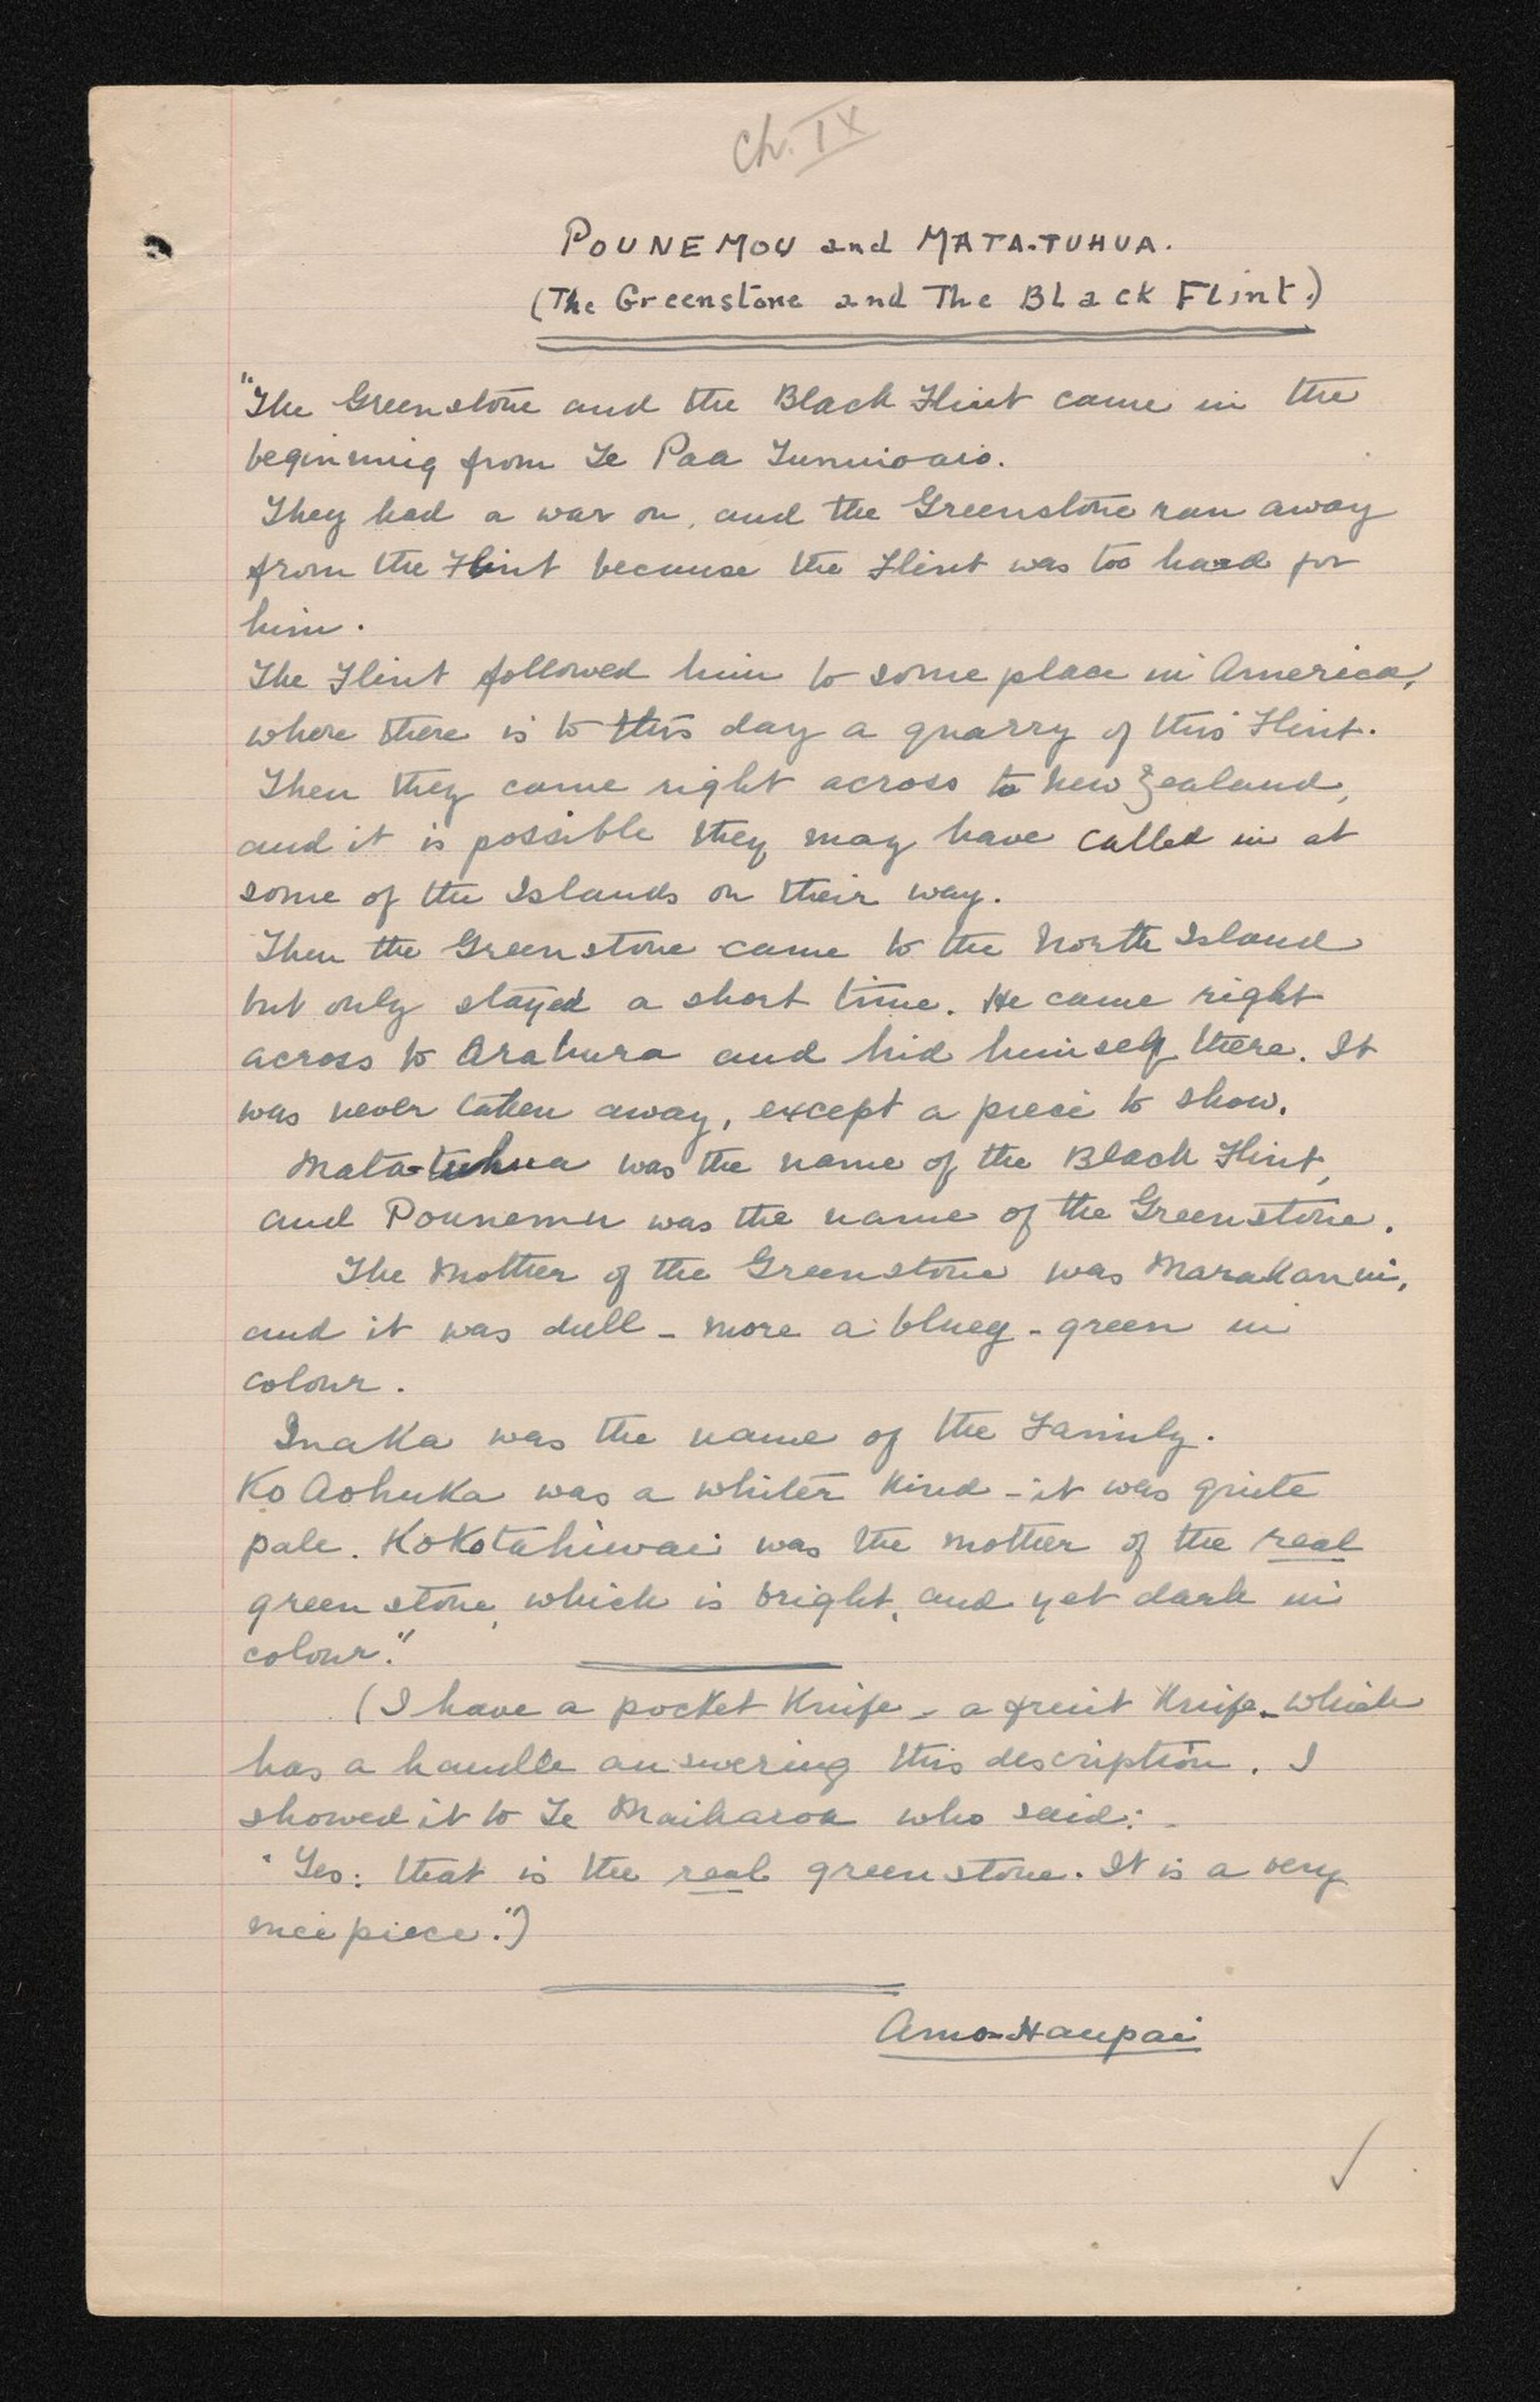 Ch. IX
POUNEMOU and MATA-TUHUA.
(The Greenstone and The Black Flint.)
"The Greenstone and the Black Flint came in the
beginning from Te Paa
They had a war on, and the Greenstone ran away
from the Flint because the Flint was too hard for
him.
The Flint followed him to some place in America,
where there is to this day a quarry of this Flint.
Then they came right across to New Zealand,
and it is possible they may have called in at
some of the Islands on their way.
Then the Greenstone came to the North Island
but only stayed a short time. He came right
across to Arahura and hid himself there. It
was never taken away, except a piece to show.
Mata-tuhua was the name of the Black Flint,
and Pounemu was the name of the Greenstone.
The Mother of the Greenstone was
and it was dull - more a bluey-green in
colour.
Inaka was the name of the Family.
Ko Aohuka was a whiter kind - it was quite
pale. Kokotahiwai was the mother of the real
greenstone, which is bright, and yet dark in
colour."
(I have a pocket Knife - a fruit Knife - which
has a handle answering this description. I
showed it to Te Maiharoa who said:-
"Yes: that is the real greenstone. It is a very
nice piece.")
Amo-Haupai